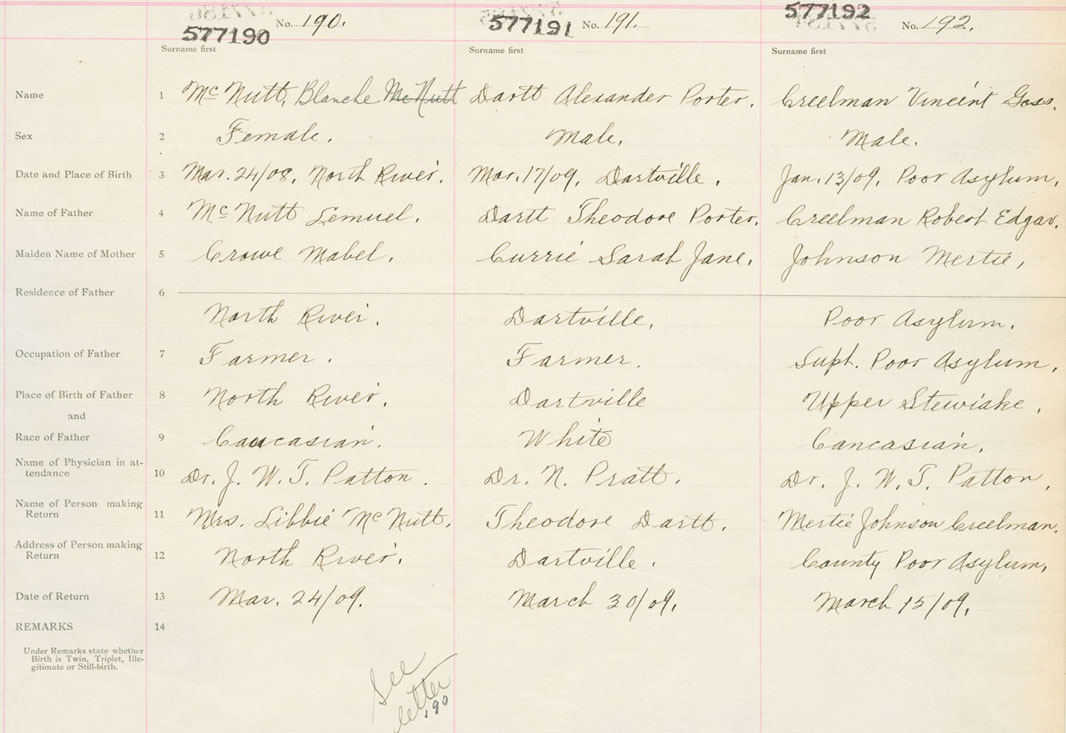 577190 No. 190. 577191 No. 191. 577192 No. 192.
Surname first Surname first Surname first
Name 1 McNutt, Blanche McNutt Dartt Alexander Porter. Creelman Vincent Goss.
Sex 2 Female. Male. Male.
Date and Place of Birth 3 Mar. 24/08, North River. Mar. 17/09, Dartville. Jan. 13/09, Poor Asylum.
Name of Father 4 McNutt Lemuel. Dartt Theodore Porter. Creelman Robert Edgar.
Maiden Name of Mother 5 Crowe Mabel. Currie Sarah Jane. Johnson Mertie,
Residence of Father 6
North River. Dartville. Poor Asylum.
Occupation of Father 7 Farmer. Farmer. Supt. Poor Asylum.
Place of Birth of Father 8 North River. Dartville Upper Stewiake.
and
Race of Father 9 Caucasian. White Cancasian.
Name of Physician in at-
tendance 10 Dr. J. W. T. Patton. Dr. N. Pratt. Dr. J. W. T. Patton.
Name of Person making
Return 11 Mrs. Libbie McNutt. Theodore Dartt. Mertie Johnson Creelman.
Address of Person making
Return 12 North River. Dartville. County Poor Asylum.
Date of Return 13 Mar. 24/09. March 30/09. March 15/09.
REMARKS 14
Under Remarks state whether
Birth is Twin, Triplet, Ille-
gitimate or Still-birth.
See
letter
190